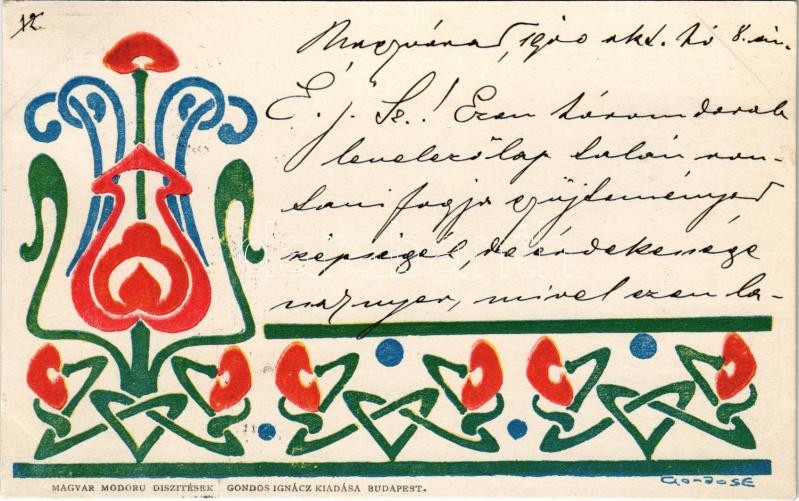 12.
Nagyvárad, 1900 okt. hó 8.-án.
É. j. Sz.! Ezen három darab
levelezőlap talán ron-
tani fogja gyűjteményed
szépségét de érdekessége
nyer, mivel ezen la-
MAGYAR MODORU DISZITÉSEK GONDOS IGNÁCZ KIADÁSA BUDAPEST.